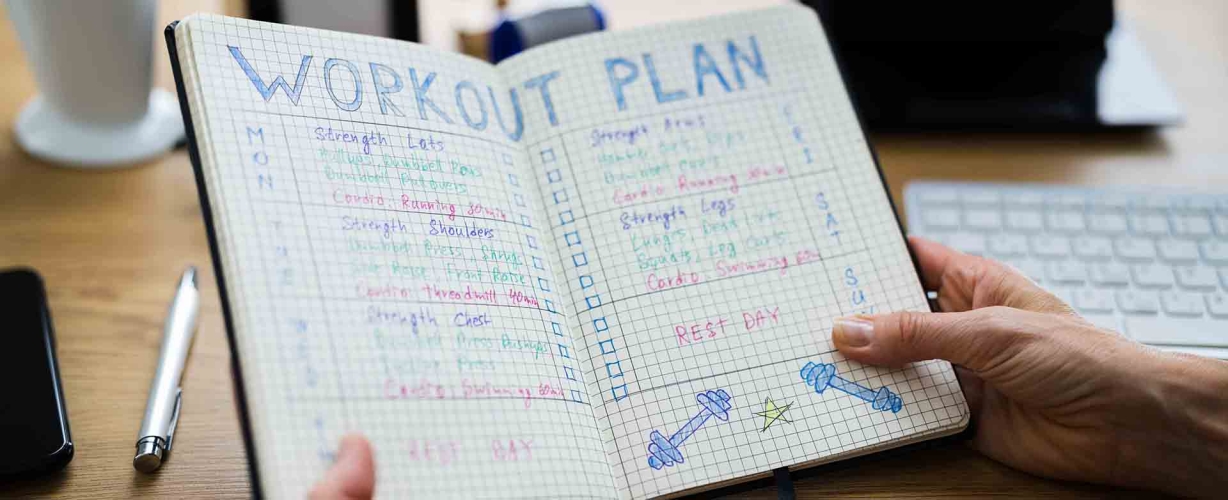 WORKOUT PLAN
MON
Strength Lats
Dumbbel Rows
Dumbbel Pullovers
Cardio: Running 30min
Strength Shoulders
Dumbbel Press, Shrugs
Side Raise, Front Raise
Cardio: Threadmill 40min
Strength Chest
Press Pushups
Press
Cardio: Swimming 60min
REST DAY
FRI
Strength Arms
Dumbbel Curls
Cardio: Running 30min
SAT
Strength Legs
Squats, Leg Curls
Cardio: Swimming
SU
REST DAY